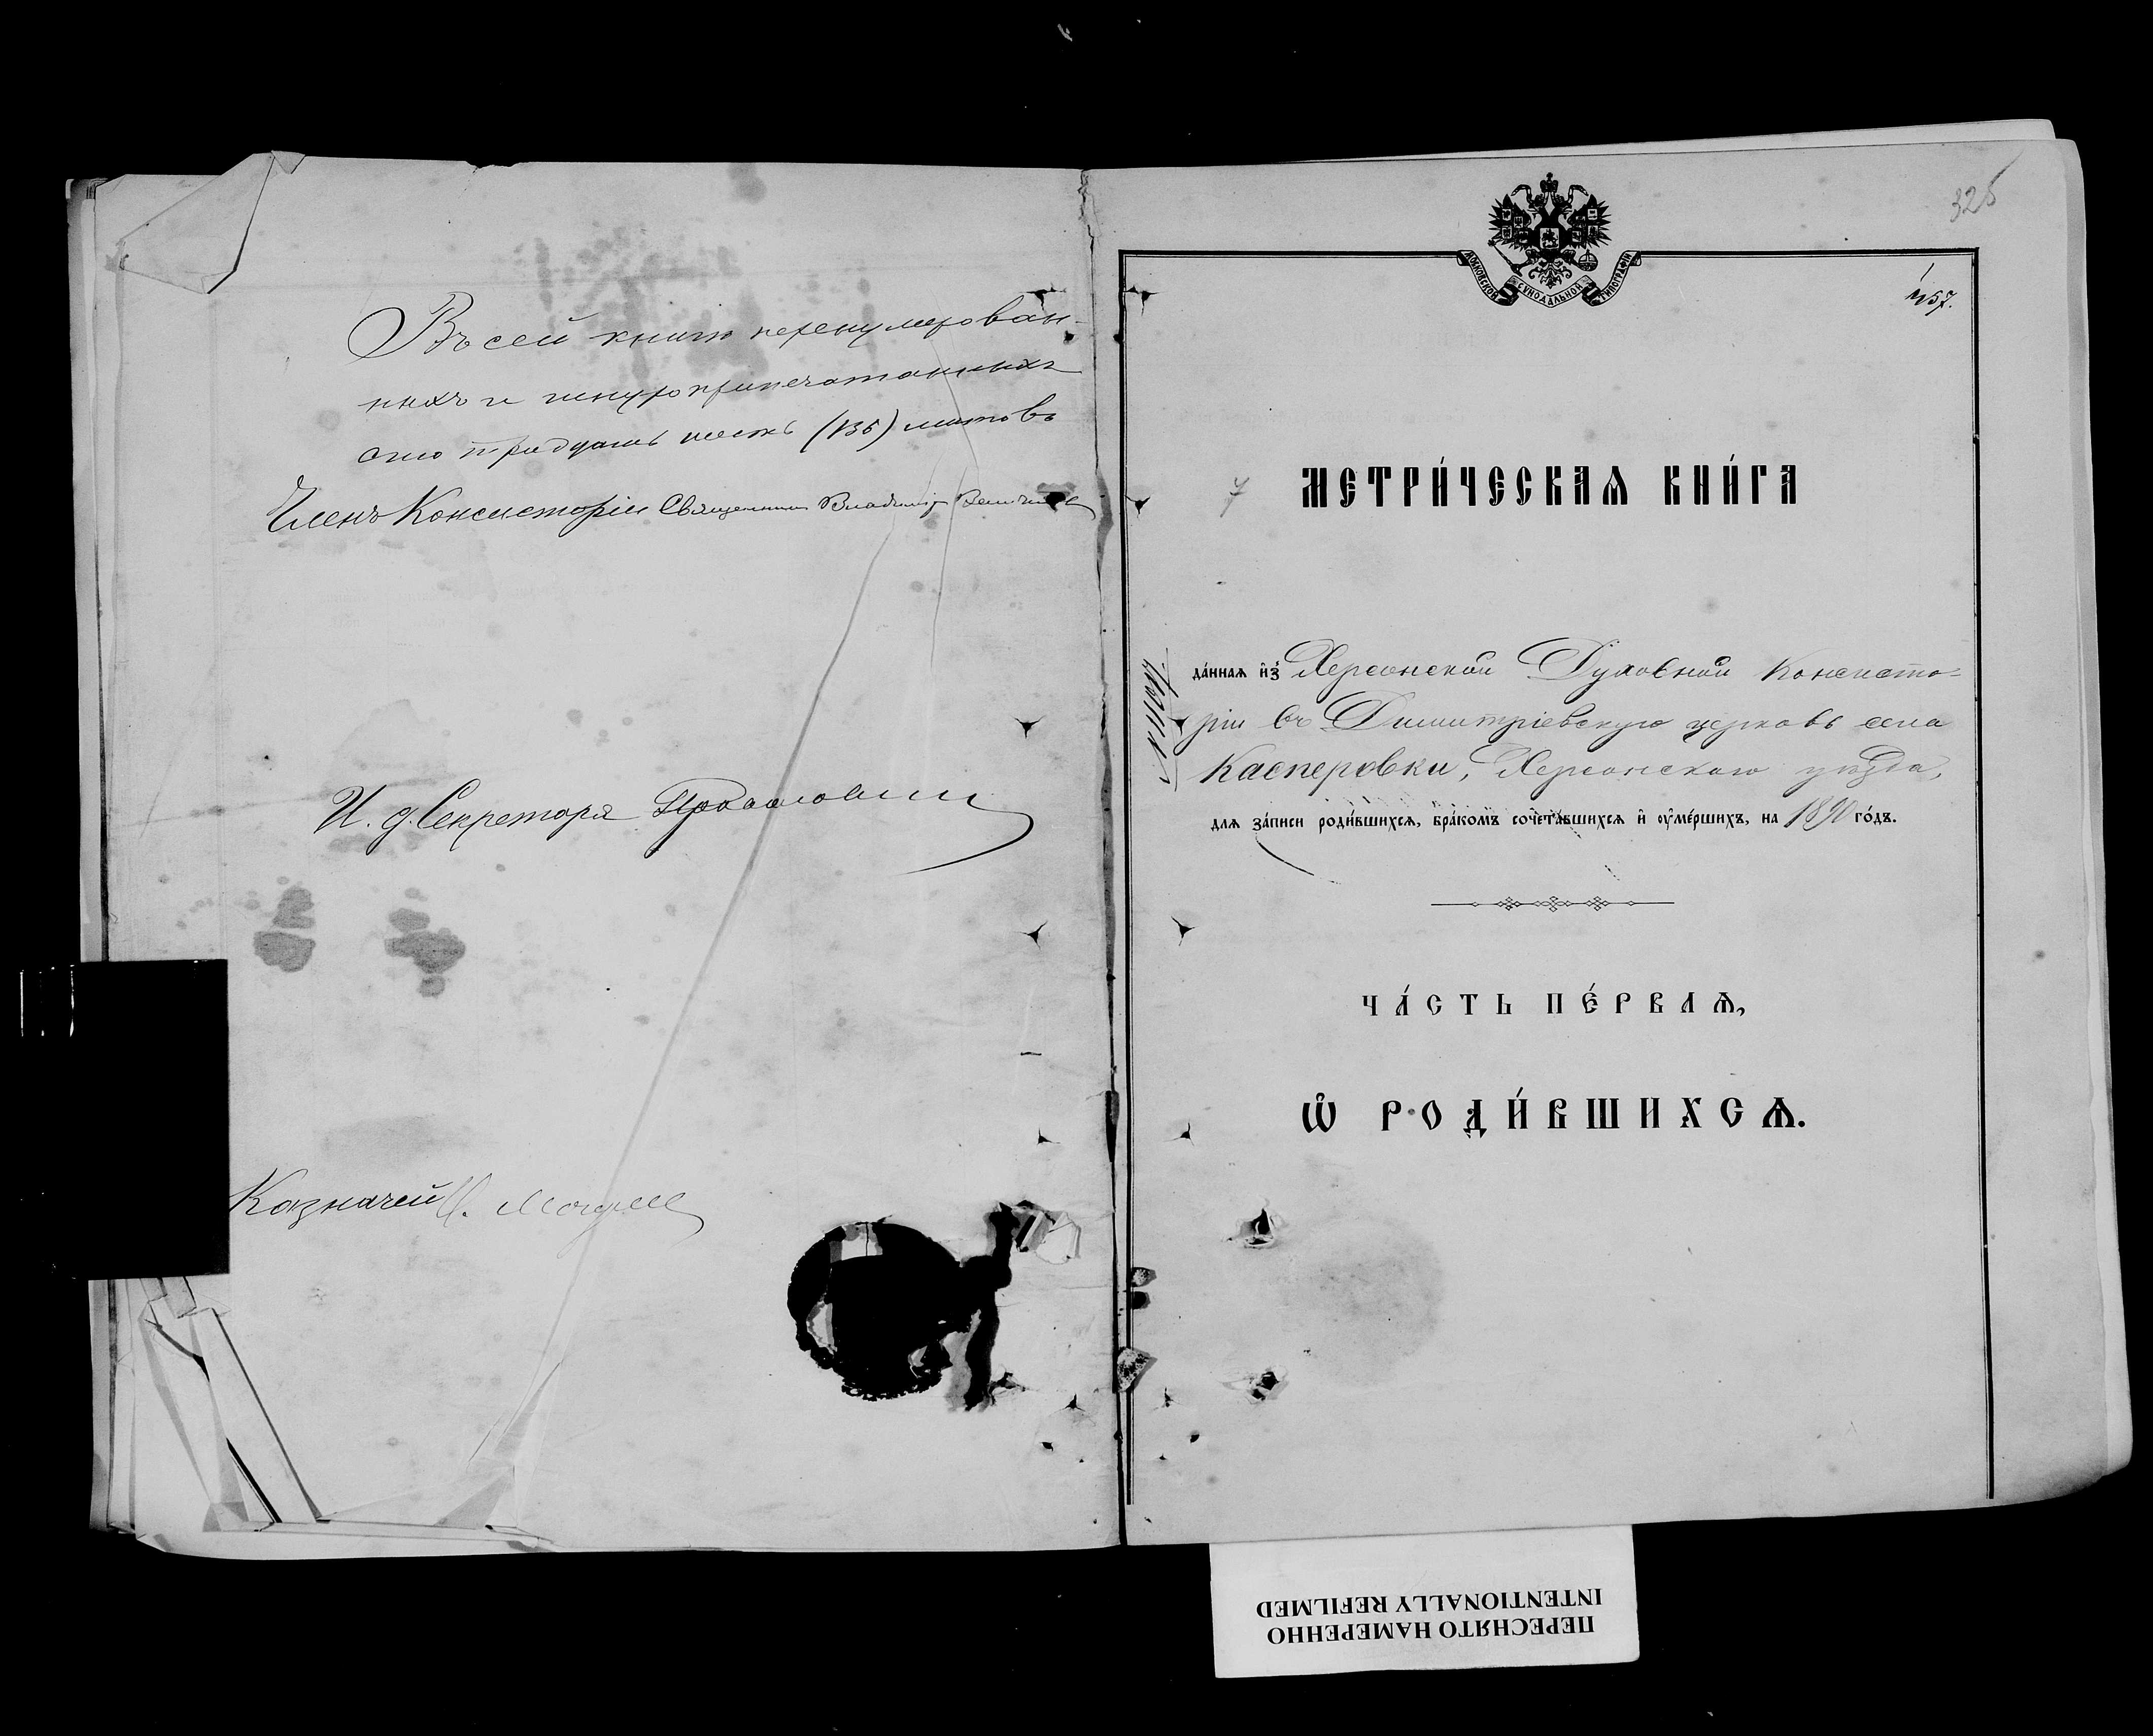 Въ сей книгѣ перенумерован-
ныхъ и шнуроприпечатанныхъ
сто тридцать шесть (136) листовъ
Членъ Консисторіи Священникъ Владиміръ
И. д. Секретаря
Казначей
325
МОСКОВСКОЙ СѴНОДАЛЬНОЙ ТИПОГРАФІИ
№57.
МЕТРИ́ЧЕСКАѦ КНИ́ГА
да́ннаѧ и҆з̾ Херсонской Духовной Консисто-
ріи въ Димитріевскую церковь села
Касперовки, Херсонскаго уѣзда,
длѧ за́писи роди́вшихсѧ, бра́комъ сочета́вшихсѧ и҆ ᲂу҆ме́ршихъ, на 1890 го́дъ.
ЧА́СТЬ ПЕ́РВАѦ,
Ѽ РОДИ́ВШИХСѦ.
ПЕРЕСНЯТО НАМЕРЕННО
INTENTIONALLY REFILMED